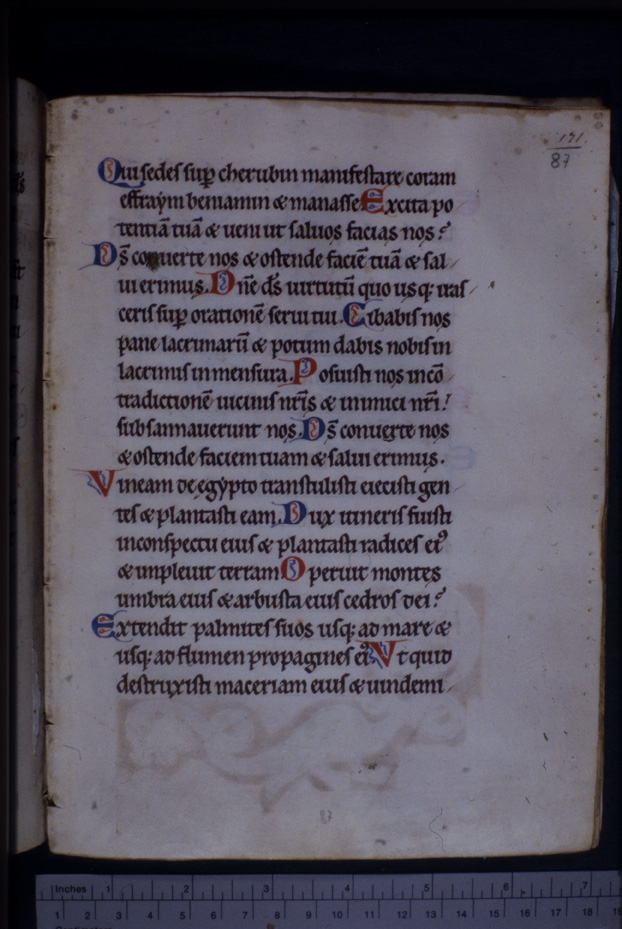 191
87
Qui sedes sup̄ cherubin manifestare coram
effraym beniamin & manasse. Excita po
tentiā tuā & veni ut saluos facias nos?
Ds̄ conuerte nos & ostende faciē tuā & sal
ui erimus. Dn̄e ds̄ uirtutū quo usq; iras
ceris sup̄ orationē serui tui. Cibabis nos
pane lacrimarū & potum dabis nobis in
lacrimis in mensura. Posuisti nos in cō
tradictionē uicinis nr̄is & inimici nr̄i!
subsannauerunt nos. Ds̄ conuerte nos
& ostende faciem tuam & salui erimus.
Vineam de egypto transtulisti eiecisti gen
tes & plantasti eam. Dux itineris fuisti
in conspectu eius & plantasti radices ei⁹
& impleuit terram Operuit montes
umbra eius & arbusta eius cedros dei?
Extendit palmites suos usq; ad mare &
usq; ad flumen propagines ei⁹ Vt quid
destruxisti maceriam eius & uindemi
87
Inches 1 2 3 4 5 6 7
1 2 3 4 5 6 7 8 9 10 11 12 13 14 15 16 17 18